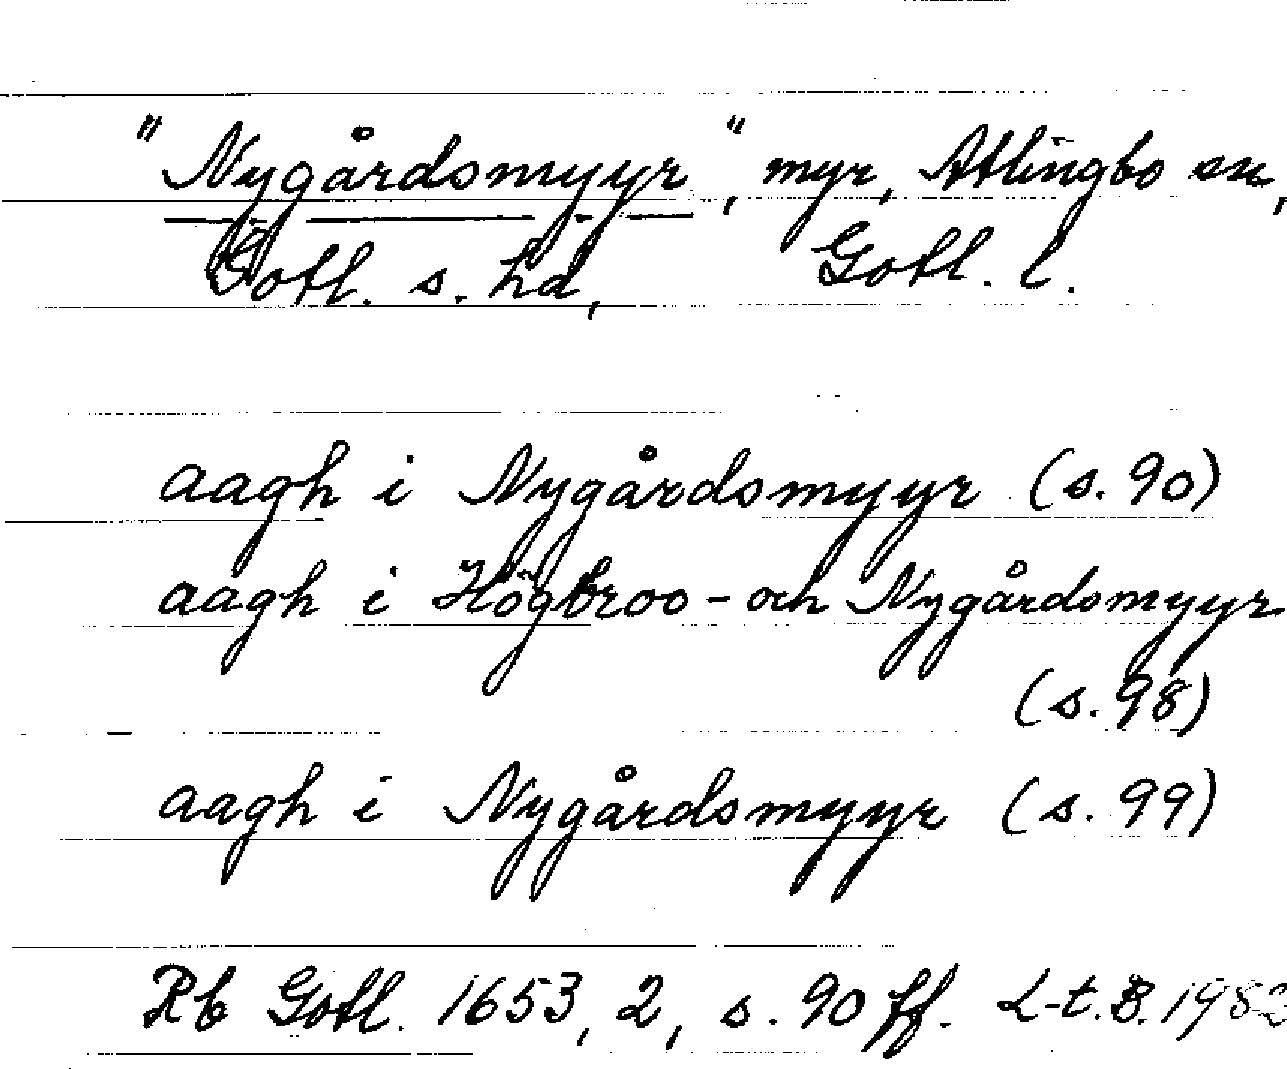 "Nygårdsmyyr", myr, Atlingbo sn,
Gotl. s. hd, Gotl. l.
aagh i Nygårdsmyyr (s. 90)
aagh i Högbroo- och Nygårdsmyyr
(s. 98)
aagh i Nygårdsmyyr (s. 99)
Rb Gotl. 1653, 2, s. 90 ff. L-t. B. 1982